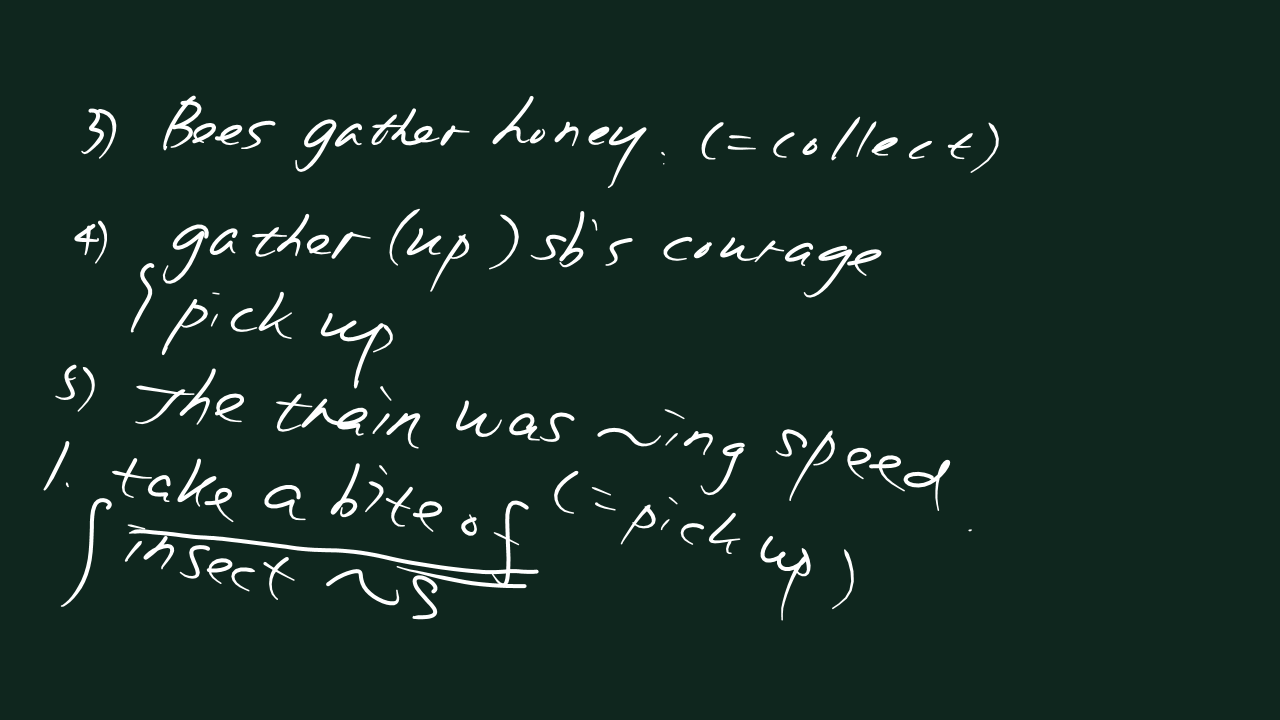 3) Bees gather honey. (=collect)
4) gather (up) sb's courage
pick up
5) The train was ~ing speed.
(=pick up)
1. take a bite of
insect ~s